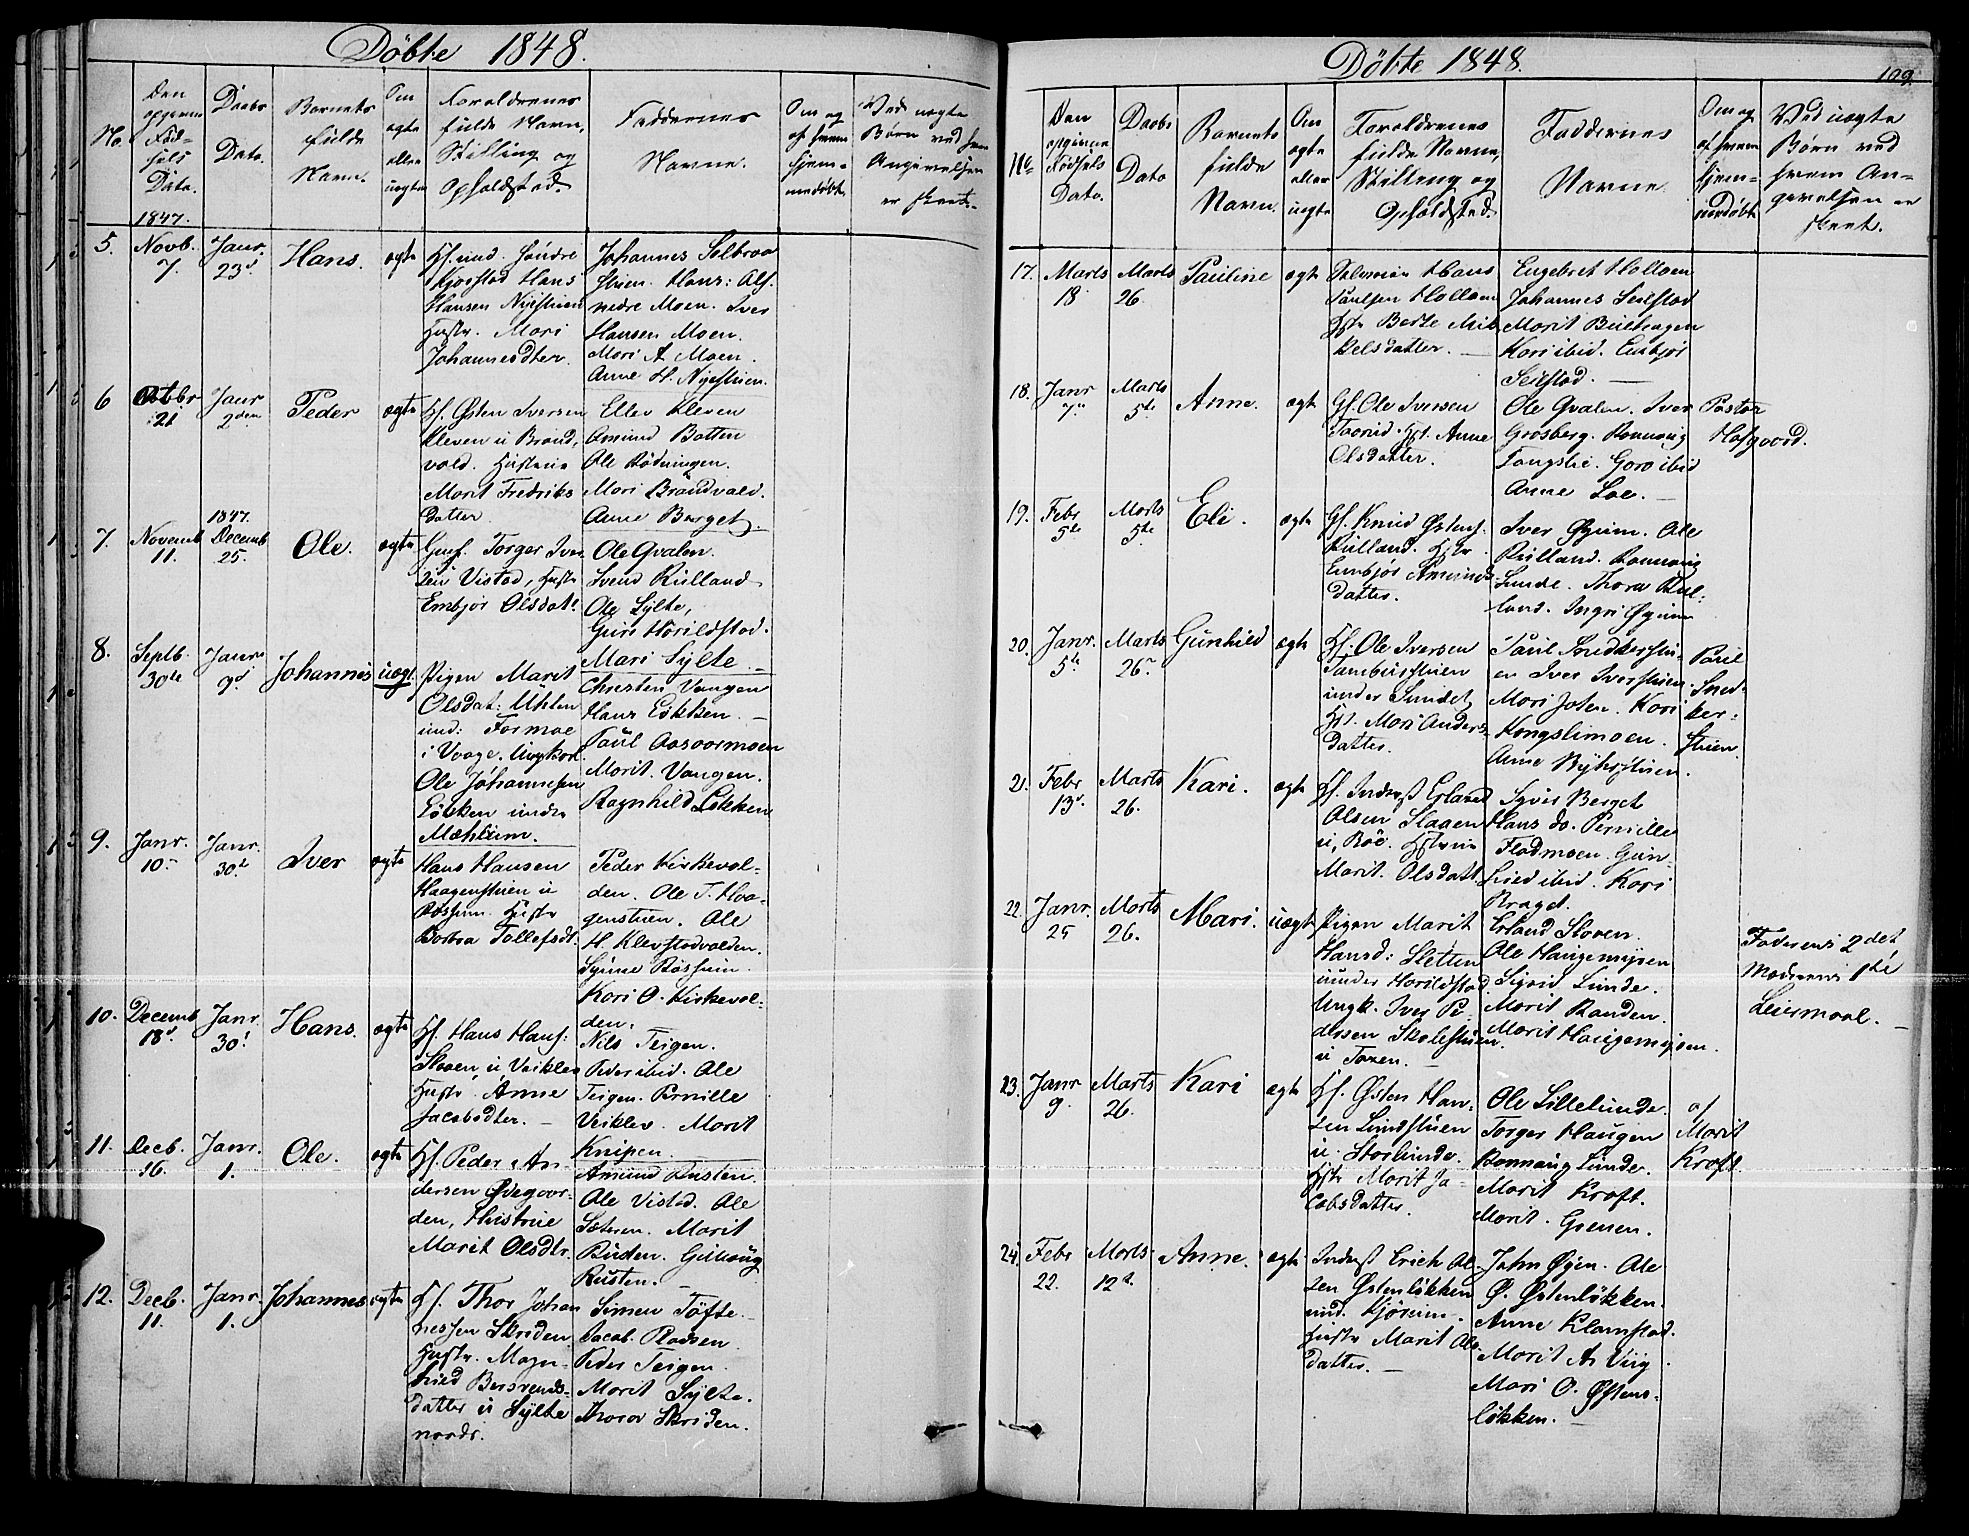 Döbte 1848.
No.
Den
opgivne
Föd-
sels
Data.
1847.
Daabs
Data.
Barnets
fulde
Navn.
Om
ægte
eller
uægte
Foreldrenes
fulde Navn,
Stilling og
Opholdsted.
Faddernes
Navne.
Om og
af hvem
hjem-
medöbt
Ved uægte
Børn ved hvem
Angivelsen
er skeet.
5. Novb. 7. Janr. 23d Hans. ægte
Hans
Hansen
Hustr. Mari
Johannesdter.
Johannes Selbraa
Hans: Als.
nedre Moen. Iver
Hansen Moen.
Mari A. Moen.
Anne H. Nyestuen.
6 Octbr 21 Janr 2den Peder ægte
Gf. Østen Iversen
Kleven u Brand,
vold. Hustrue
Marit Fredriks
datter.
Ellev Kleven
Amund Botten
Ole Rödningen.
Mari Brandvold.
Anne Berget.
7. Novemb 11. 1847. Decemb 25. Ole. ægte
Torger Iver
sen Vistad, Hustr
Embjør Olsdat.
Ole Qvalen.
Svend Rulland
Ole Sylte,
Guri Horildstad.
Mari Sylte.
8. Septb. 30te Janr 9d Johannes uægt.
Pigen Marit
Olsdat: Uhlen
und: Formoe
i Vaage. Ungkarl
Ole Johannesen
Løkken under
Mæhlum.
Christen Vangen
Hans Løkken.
Paul Aasaarmoen
Marit. Vangen.
Ragnhild Løkken
9. Janr. 10 Janr. 30te Iver ægte
Hans Hansen
Haagenstuen u
Røssum. Hustr
Barbra Tollefsdt.
Peder Kirkevol-
den. Ole T. Haa-
genstuen. Ole
H. Klevstadvolden.
Synne Røssum.
Kari O. Kirkevol-
den.
10. Decemb 18d Janr. 30t Hans. ægte
Hf. Hans Hans:
Sloen, u Veiklev
Hustr. Anne
Jacobsdter.
Nils Teigen.
Peder ibid. Ole
Teigen. Pernille
Veiklev. Marit
Knipen.
11. Decb. 16. Janr. 1. Ole. ægte
Hf. Peder An-
dersen Øvegaar-
den, Hustrue
Marit Olsdtr.
Amund Rusten.
Ole Vistad. Ole
Sæteren. Marit
Ruden. Gullaug
Rusten.
12. Decb. 11. Janr. 1. Johannes ægte
Hf. Thor Johan
nessen Skriden
Hustr. Magn-
hild Bersvends-
datter u Sylte
nordr.
Simen Töfte.
Jacob. Pladsen
Peder Teigen.
Marit Sylte.
Thora Skriden.
Döbte 1848.
109.
No
Den
opgivne
Födsels
Data.
Daabs
Data
Barnets
fulde
Navn.
Om
ægte
eller
uægte
Foreldrenes
fulde Navne,
Stilling og
Opholdsted.
Faddernes
Navne.
Om og
af hvem
hjem-
medöbt
Ved uægte
Børn ved
hvem An-
givelsen er
skeet.
17. Marts 18 Marts 26. Pauline ægt
Hans
Paulsen Holloen
Hstr Berte Mik
kelsdatter.
Engebret Holloen
Johannes Seilstad
Marit Beilhagen
Kari ibid. Embjør
Seilstad.
18. Janr 7de Marts 5te Anne. ægt
Gf. Ole Iversen
Taarud. Hst. Anne
Olsdatter.
Ole Qvalen. Iver
Grosberg. Rannoug
Fangslie. Goro ibid
Anne Loe.
Pastor
Hofgaard.
19. Febr 5te Marts 5te Eli. ægte
Gf. Knud Østens.
Rulland. Hstr
Embjør Amunds
datter.
Iver Øyum. Ole
Rulland. Rannoug
Lunde. Thora Rul-
land. Ingri Øyum
20. Janr. 5te Marts 26de Gunhild ægte
Hf. Ole Iversen
Tamburstuen
under Sundet
Hst. Mari Anders
datter.
Paul Snekkerstu-
en Iver Iverstuen.
Mari Joten. Kari
Kongslimoen.
Anne
Paul
Snek-
ker-
stuen
21. Febr 13d. Marts 26. Kari. ægte
Hf. Inderst Erland
Olsen Slaaen
u, Röe. Hstrue
Marit Olsdatt
Syver Berget
Hans do. Pernille
Fladmoen. Gun-
hild ibid. Kari
Kraget.
22. Janr. 25 Marts 26. Mari. uægt
Pigen Marit
Hansd: Sletten
under Horildstad
Ungk. Iver Pe-
dersen
u
Erland Sloven.
Ole Haugemyren
Sigrid Lunde.
Marit Randen.
Marit Haugemyren.
Faderens 2det
Moderens 1te
Leiermaal.
23. Janr 9. Marts 26. Kari ægte
Hf. Østen Han-
sen Lundstuen
u. Storlunde.
Hstr Marit Ja-
cobsdatter.
Ole Lillelunde.
Torger Haugen
Rannaug Lunde.
Marit Kroft.
Marit. Grenen.
af
Marit
Kroft.
24. Febr 22. Marts 12t. Anne. ægte
Inderst Erich Ol-
sen Østenløkken
und. Kjørum.
Hustr Marit Ols
datter.
John Øyen. Ole
Ø. Østenløkken.
Anne Klomstad.
Marit A. Viig.
Mari O. Østens-
løkken.